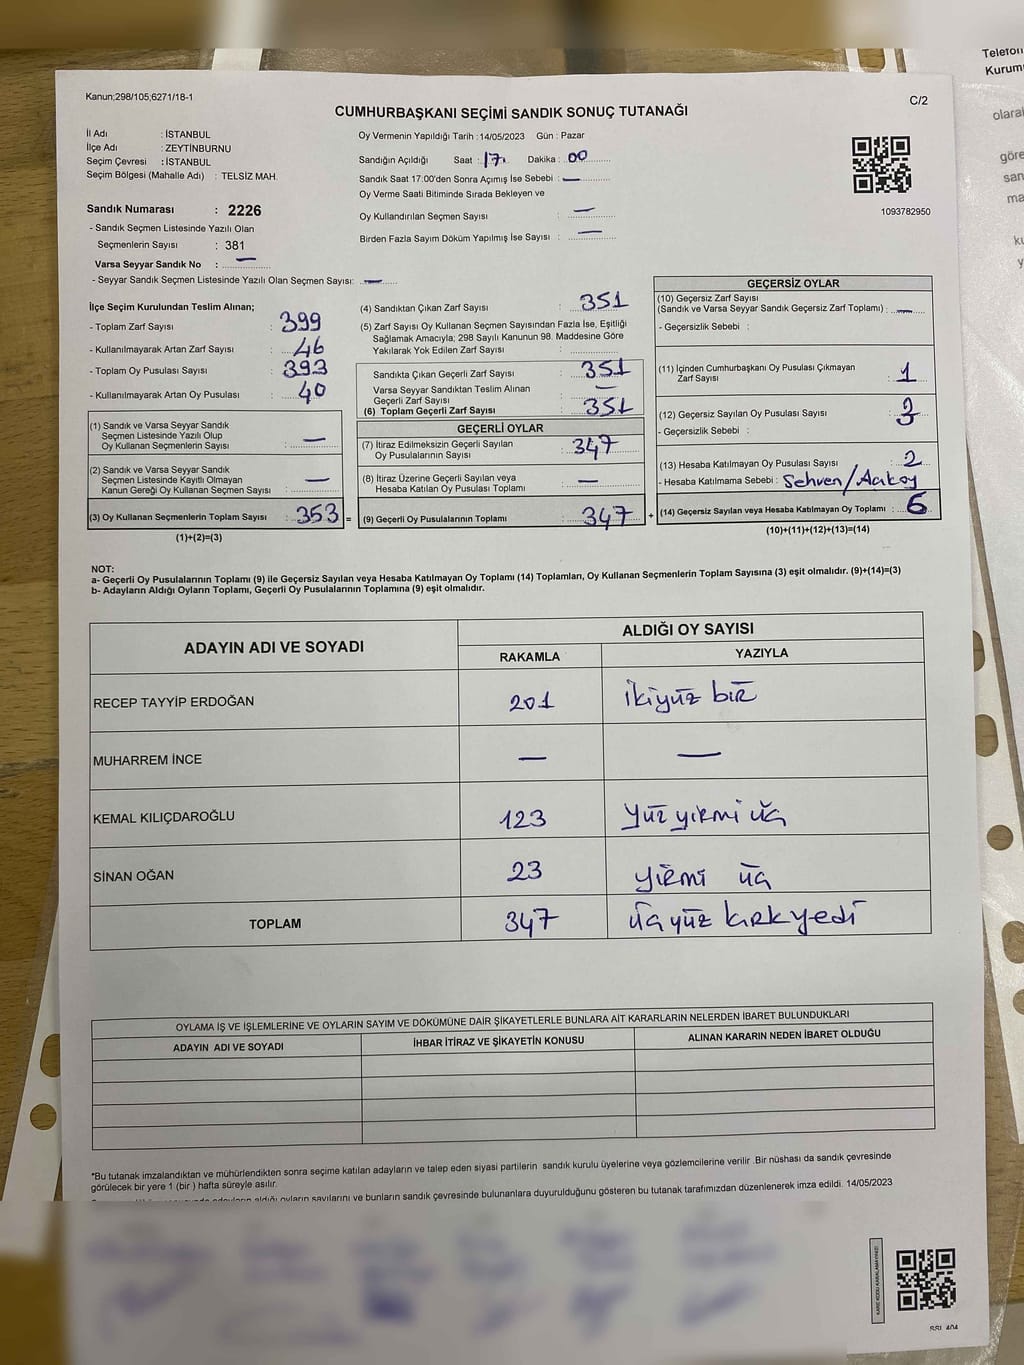 Telefon
Kurum
Kanun;298/105;6271/18-1
C/2
CUMHURBAŞKANI SEÇİMİ SANDIK SONUÇ TUTANAĞI
İl Adı : İSTANBUL
İlçe Adı : ZEYTİNBURNU
Seçim Çevresi : İSTANBUL
Seçim Bölgesi (Mahalle Adı) : TELSİZ MAH.
Sandık Numarası : 2226
- Sandık Seçmen Listesinde Yazılı Olan
Seçmenlerin Sayısı : 381
Varsa Seyyar Sandık No : —
- Seyyar Sandık Seçmen Listesinde Yazılı Olan Seçmen Sayısı: —
Oy Vermenin Yapıldığı Tarih : 14/05/2023 Gün : Pazar
Sandığın Açıldığı Saat : 17 Dakika : 00
Sandık Saat 17:00'den Sonra Açımış İse Sebebi : —
Oy Verme Saati Bitiminde Sırada Bekleyen ve
Oy Kullandırılan Seçmen Sayısı : —
Birden Fazla Sayım Döküm Yapılmış İse Sayısı : —
1093782950
İlçe Seçim Kurulundan Teslim Alınan;
- Toplam Zarf Sayısı : 399
- Kullanılmayarak Artan Zarf Sayısı : 46
- Toplam Oy Pusulası Sayısı : 393
- Kullanılmayarak Artan Oy Pusulası : 40
(1) Sandık ve Varsa Seyyar Sandık
Seçmen Listesinde Yazılı Olup
Oy Kullanan Seçmenlerin Sayısı : —
(2) Sandık ve Varsa Seyyar Sandık
Seçmen Listesinde Kayıtlı Olmayan
Kanun Gereği Oy Kullanan Seçmen Sayısı : —
(3) Oy Kullanan Seçmenlerin Toplam Sayısı : 353 =
(1)+(2)=(3)
(4) Sandıktan Çıkan Zarf Sayısı : 351
(5) Zarf Sayısı Oy Kullanan Seçmen Sayısından Fazla İse, Eşitliği
Sağlamak Amacıyla; 298 Sayılı Kanunun 98. Maddesine Göre
Yakılarak Yok Edilen Zarf Sayısı :
Sandıkta Çıkan Geçerli Zarf Sayısı : 351
Varsa Seyyar Sandıktan Teslim Alınan
Geçerli Zarf Sayısı : —
(6) Toplam Geçerli Zarf Sayısı : 351
GEÇERLİ OYLAR
(7) İtiraz Edilmeksizin Geçerli Sayılan
Oy Pusulalarının Sayısı : 347
(8) İtiraz Üzerine Geçerli Sayılan veya
Hesaba Katılan Oy Pusulası Toplamı : —
(9) Geçerli Oy Pusulalarının Toplamı : 347 +
GEÇERSİZ OYLAR
(10) Geçersiz Zarf Sayısı
(Sandık ve Varsa Seyyar Sandık Geçersiz Zarf Toplamı) : —
- Geçersizlik Sebebi :
(11) İçinden Cumhurbaşkanı Oy Pusulası Çıkmayan
Zarf Sayısı : 1
(12) Geçersiz Sayılan Oy Pusulası Sayısı : 3
- Geçersizlik Sebebi :
(13) Hesaba Katılmayan Oy Pusulası Sayısı : 2
- Hesaba Katılmama Sebebi : Sehven/Acıkoy
(14) Geçersiz Sayılan veya Hesaba Katılmayan Oy Toplamı : 6
(10)+(11)+(12)+(13)=(14)
NOT:
a- Geçerli Oy Pusulalarının Toplamı (9) ile Geçersiz Sayılan veya Hesaba Katılmayan Oy Toplamı (14) Toplamları, Oy Kullanan Seçmenlerin Toplam Sayısına (3) eşit olmalıdır. (9)+(14)=(3)
b- Adayların Aldığı Oyların Toplamı, Geçerli Oy Pusulalarının Toplamına (9) eşit olmalıdır.
ADAYIN ADI VE SOYADI ALDIĞI OY SAYISI
RAKAMLA YAZIYLA
RECEP TAYYİP ERDOĞAN 201 ikiyüz bir
MUHARREM İNCE — —
KEMAL KILIÇDAROĞLU 123 Yüz yirmi üç
SİNAN OĞAN 23 yirmi üç
TOPLAM 347 üç yüz kırk yedi
OYLAMA İŞ VE İŞLEMLERİNE VE OYLARIN SAYIM VE DÖKÜMÜNE DAİR ŞİKAYETLERLE BUNLARA AİT KARARLARIN NELERDEN İBARET BULUNDUKLARI
ADAYIN ADI VE SOYADI İHBAR İTİRAZ VE ŞİKAYETİN KONUSU ALINAN KARARIN NEDEN İBARET OLDUĞU
*Bu tutanak imzalandıktan ve mühürlendikten sonra seçime katılan adayların ve talep eden siyasi partilerin sandık kurulu üyelerine veya gözlemcilerine verilir .Bir nüshası da sandık çevresinde
görülecek bir yere 1 (bir ) hafta süreyle asılır.
adayların aldığı oyların sayılarını ve bunların sandık çevresinde bulunanlara duyurulduğunu gösteren bu tutanak tarafımızdan düzenlenerek imza edildi. 14/05/2023